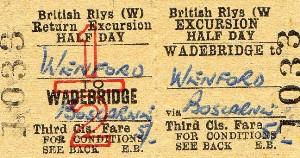 British Rlys (W)
Return Excursion
HALF DAY
WENFORD
to
WADEBRIDGE
via BOSCARNE
Third Cls. Fare 5/-
FOR CONDITIONS
SEE BACK E.B.
1033
1
British Rlys (W)
EXCURSION
HALF DAY
WADEBRIDGE to
WENFORD
via BOSCARNE
Third Cls. Fare
FOR CONDITIONS
SEE BACK E.B.
1033